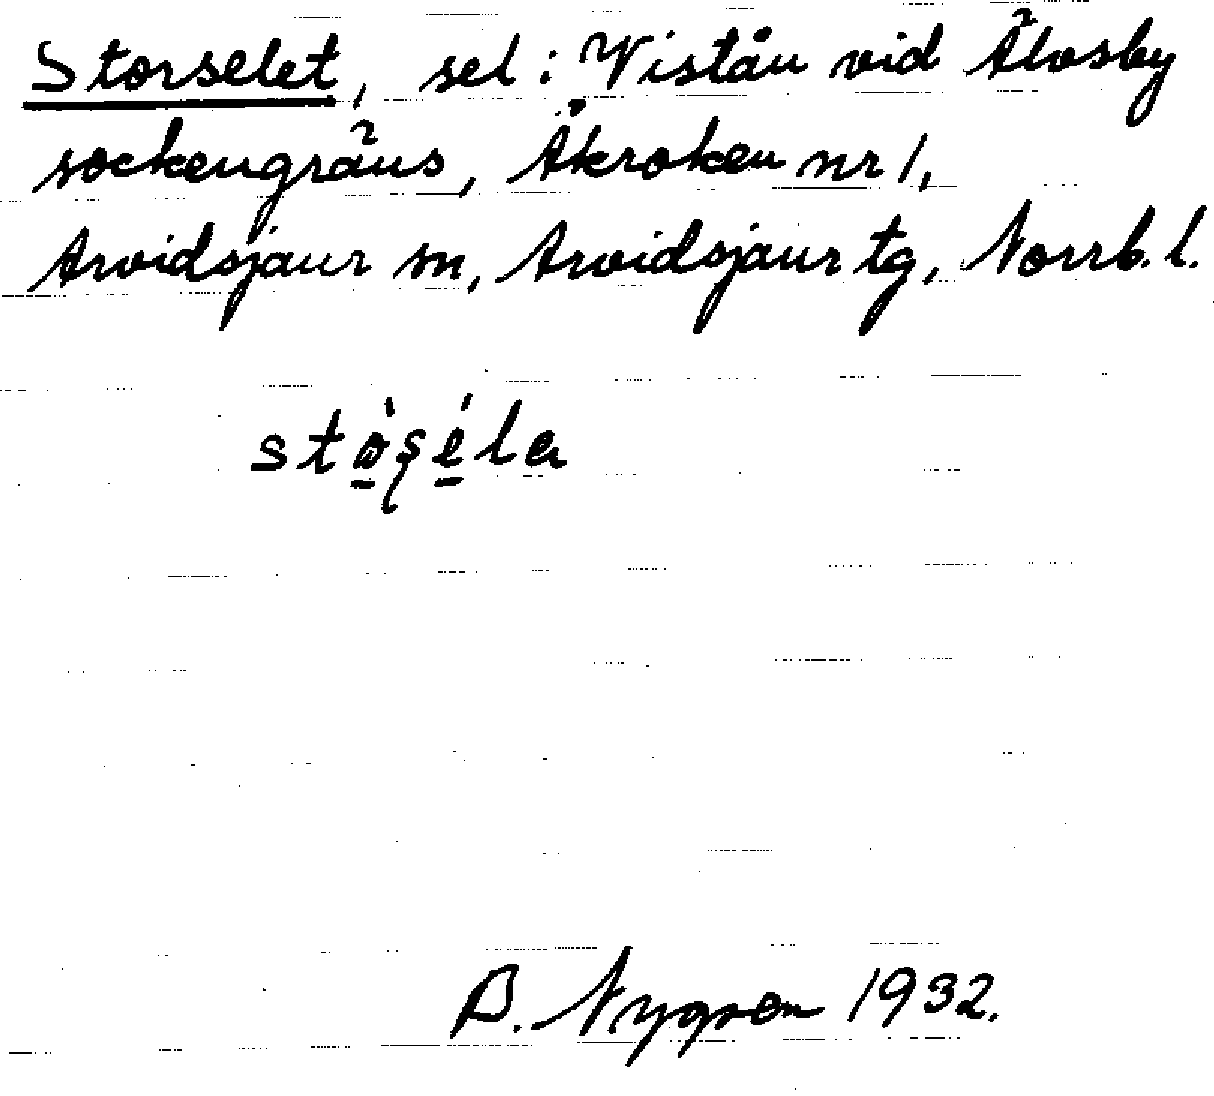 Storselet, sel i Vistån vid Älvsby
sockengräns, Åkroken nr 1,
Arvidsjaur sn, Arvidsjaur tg, Norrb. l.
B. Nygren 1932.